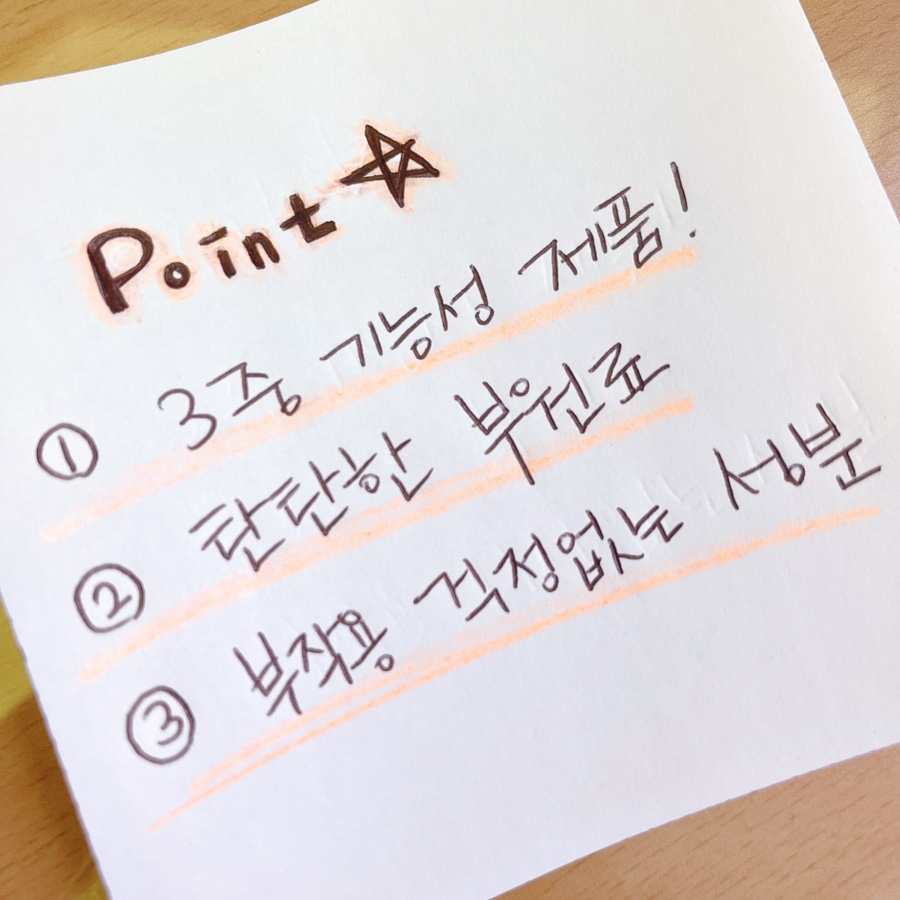 Point ☆
① 3중 기능성 제품!
② 탄탄한 부원료
③ 부작용 걱정없는 성분